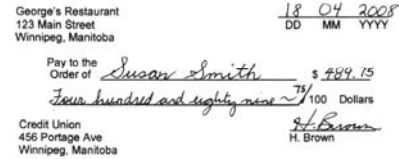 George's Restaurant
123 Main Street
Winnipeg, Manitoba
18 04 2008
DD MM YYYY
Pay to the
Order of Susan Smith $ 489.75
Four hundred and eighty nine ~ 75/100 Dollars
Credit Union
456 Portage Ave
Winnipeg, Manitoba
H. Brown
H. Brown